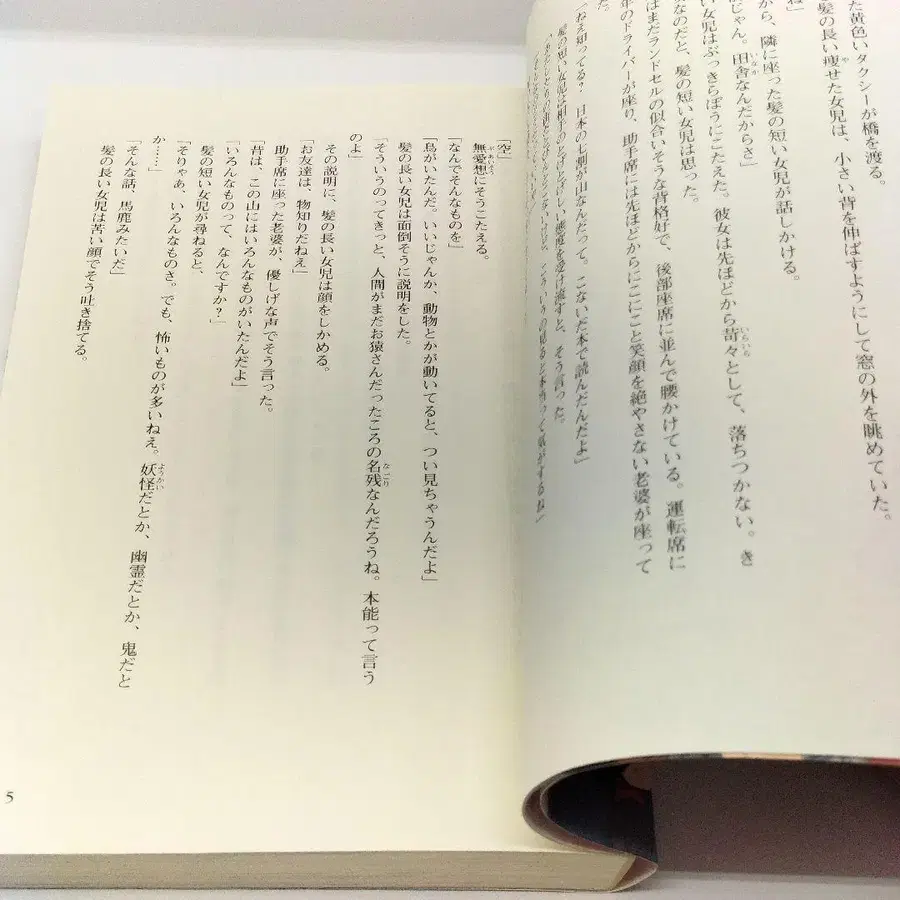 た黄色いタクシーが橋を渡る。
髪の長い痩せた女児は、小さい背を伸ばすようにして窓の外を眺めていた。
ね」
から、隣に座った髪の短い女児が話しかける。
じゃん。田舎なんだからさ」
い女児はぶっきらぼうにこたえた。彼女は先ほどから苛々として、落ちつかない。き
なのだと、髪の短い女児は思った。
はまだランドセルの似合いそうな背格好で、後部座席に並んで腰かけている。運転席に
年のドライバーが座り、助手席には先ほどからにこにこと笑顔を絶やさない老婆が座って
た。
「ねえ知ってる？　日本の七割が山なんだって。こないだ本で読んだんだよ」
髪の短い女児は相手のとげとげしい態度を受け流すと、そう言った。
「空」
無愛想にそうこたえる。
「なんでそんなものを」
「鳥がいたんだ。いいじゃんか、動物とかが動いてると、つい見ちゃうんだよ」
髪の長い女児は面倒そうに説明をした。
「そういうのってきっと、人間がまだお猿さんだったころの名残なんだろうね。本能って言う
のよ」
その説明に、髪の長い女児は顔をしかめる。
「お友達は、物知りだねえ」
助手席に座った老婆が、優しげな声でそう言った。
「昔は、この山にはいろんなものがいたんだよ」
「いろんなものって、なんですか？」
髪の短い女児が尋ねると、
「そりゃあ、いろんなものさ。でも、怖いものが多いねえ。妖怪だとか、幽霊だとか、鬼だと
か……」
「そんな話、馬鹿みたいだ」
髪の長い女児は苦い顔でそう吐き捨てる。
5